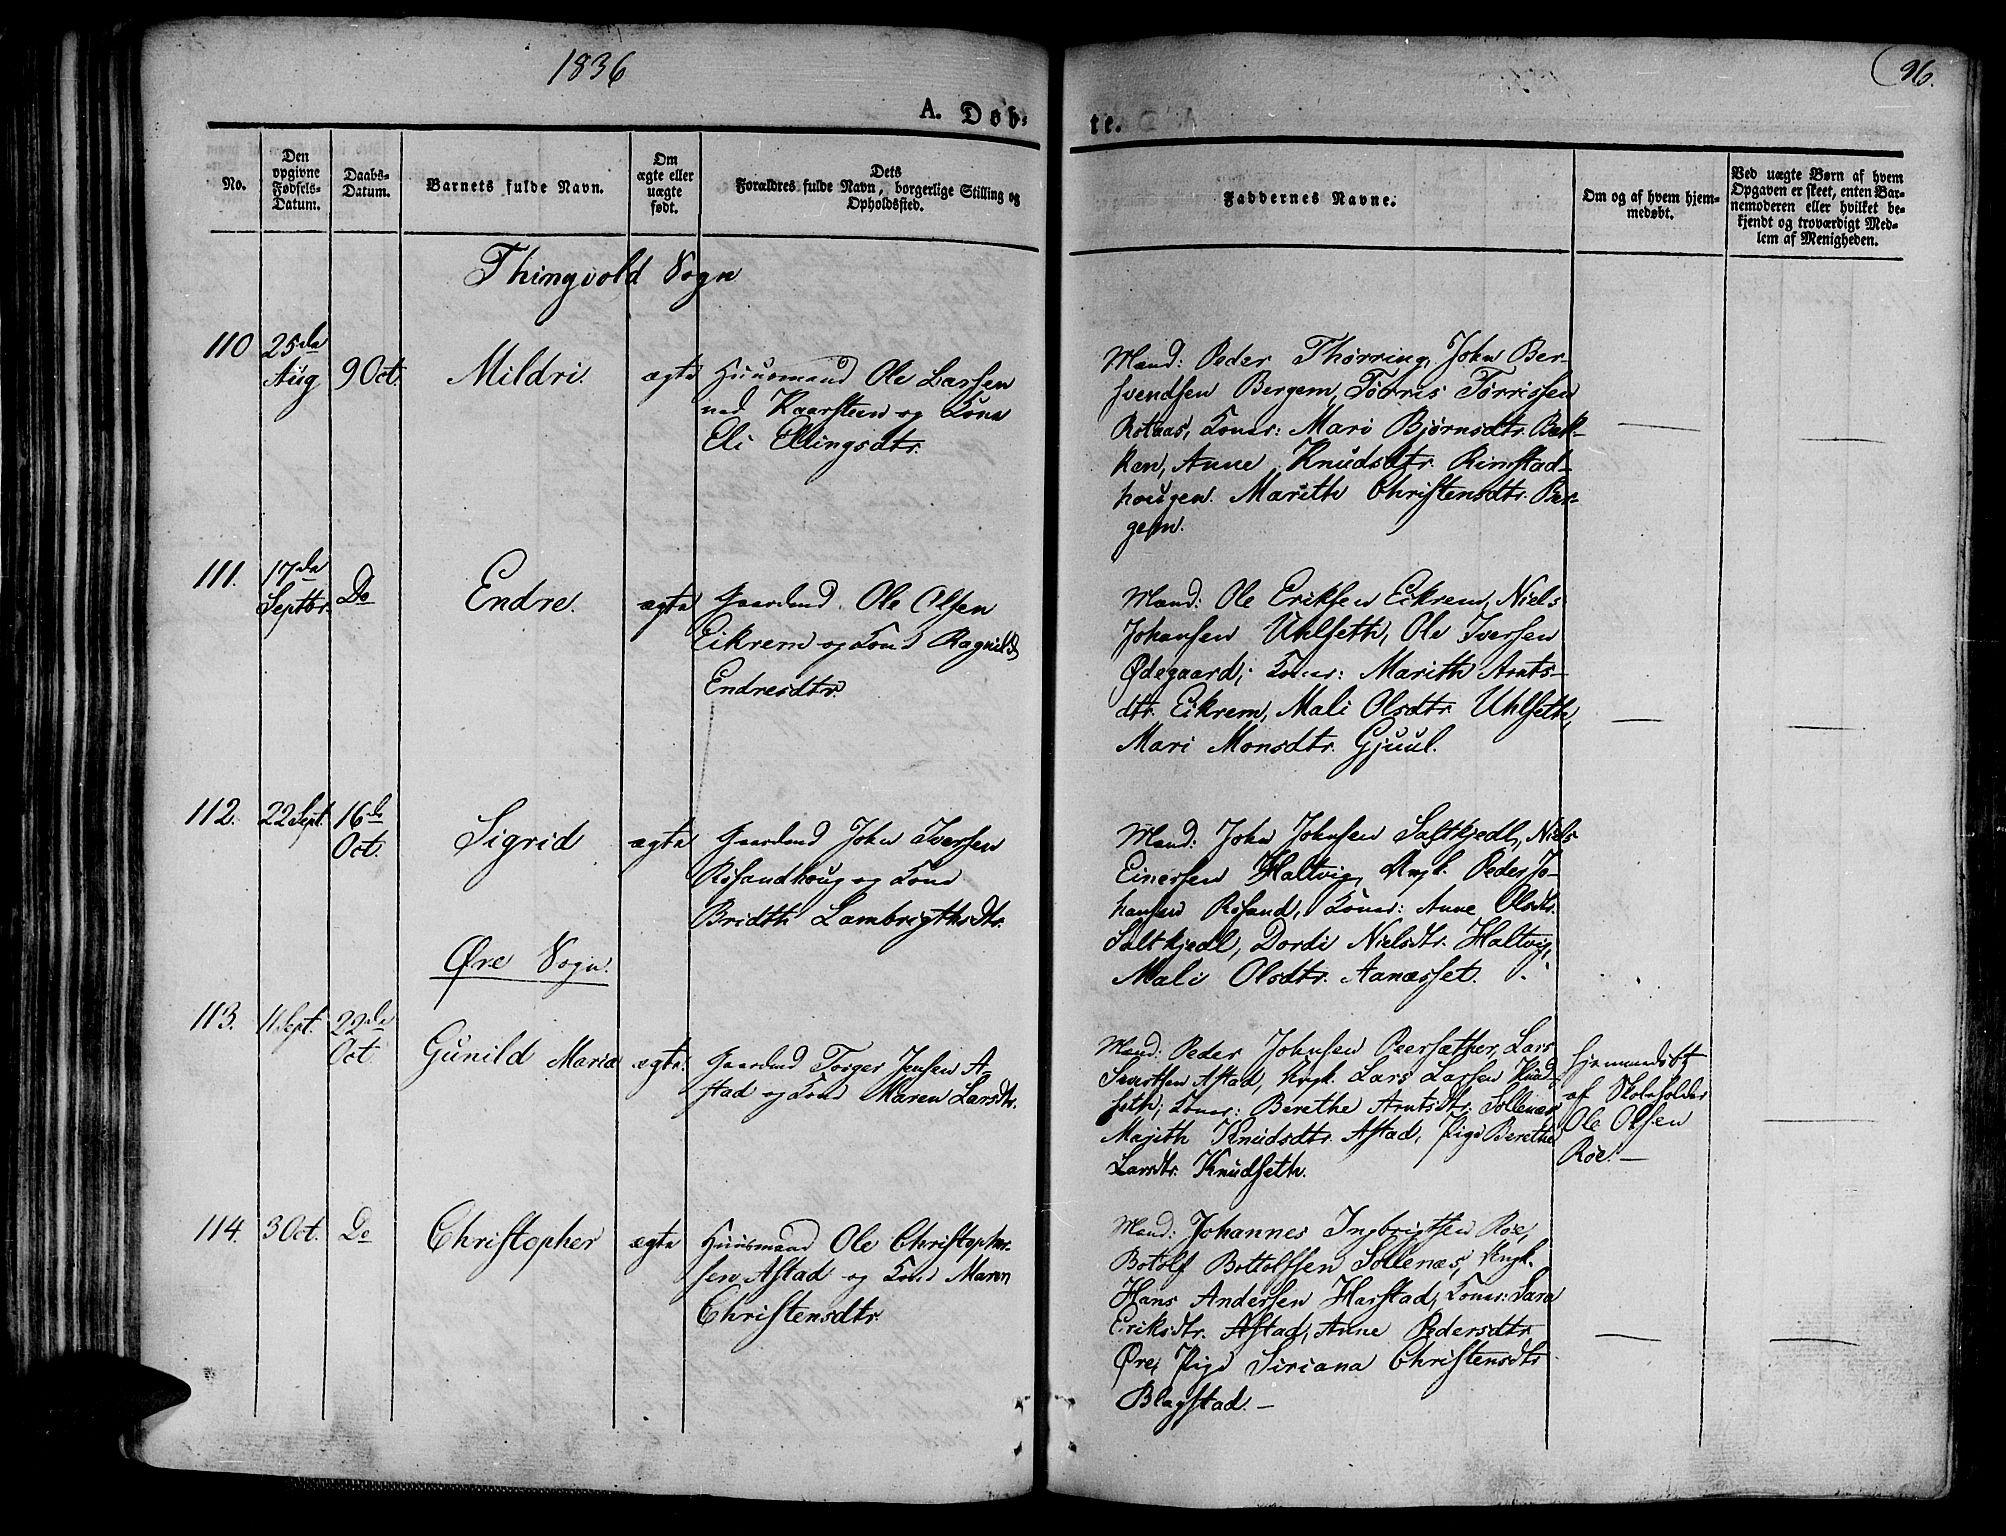 1836
96.
A. Døb-
te.
No.
Den
opgivne
Fødsels-
Datum.
Daabs-
Datum.
Barnets fulde Navn.
Om
ægte eller
uægte
født.
Dets
Forældres fulde Navn, borgerlige Stilling og
Opholdssted.
Faddernes Navne.
Om og af hvem hjem-
medøbt.
Ved uægte Børn af hvem
Opgaven er skeet, enten Bar-
nemoderen eller hvilket be-
kjendt og troværdigt Med-
lem af Menigheden.
Thingvold Sogn
110
25de
Aug
9 Oct.
Mildri.
ægte
Huusmand Ole Larsen
ned Kaarsteen og Kone
Eli Ellingsdtr.
Mænd: Peder Thørring, John Ber-
svendsen Bergem, Tørris Tørrissen
Rotaas, Koner: Mari Bjørnsdtr. Bak-
ken, Anne Knudsdtr. Rimstad-
hougen. Marith Christensdtr. Ber-
gem.
111.
17de
Septbr.
Do
Endre.
ægte
Gaardmd. Ole Olsen
Eikrem og Kone Ragnild
Endresdtr.
Mænd: Ole Eriksen Eikrem, Niels
Johansen Uhlseth, Ole Iversen
Ødegaard; Koner: Marith Arnts-
dtr. Eikrem, Mali Olsdtr. Uhlseth,
Mari Monsdtr. Gjuul.
112.
22 Sept.
16de
Oct.
Sigrid
ægte
Gaardmd John Iversen
Røsandhoug og Kone
Bridth Lambrigthsdtr.
Mænd: John Johnsen Saltkjedl, Niels
Einersen Haltvig, Ungk. Peder Jo-
hansen Røsand, Koner: Anne Olsdtr.
Saltkjedl, Dordi Nielsdtr. Haltvig,
Mali Olsdtr. Aanæsset.
Øre Sogn.
113.
11 Sept.
22de
Oct.
Gunild Maria
ægte
Gaardmd Torger Jensen A-
stad og Kone Maren Larsdtr.
Mænd: Peder Johnsen Peersæther, Lars
Sivertsen Astad, Ungk. Lars Larsen Knud-
seth; Koner: Berethe Arntsdtr. Sollenæs
Marith Knudsdtr. Astad, Pige Berethe
Larsdtr. Knudseth.
hjemmedøbt
af Skoleholder
Ole Olsen
Roe. —
114.
3 Oct.
Do
Christopher
ægte
Huusmand Ole Christopher-
sen Astad og Kone Maren
Christensdtr.
Mænd: Johannes Ingbrigtsen Roe,
Botolf Bottolfsen Sollenæs, Ungk.
Hans Andersen Harstad, Koner: Sara
Eriksdtr. Astad, Anne Pedersdtr.
Øre, Pige Siriana Christensdtr.
Blagstad. —